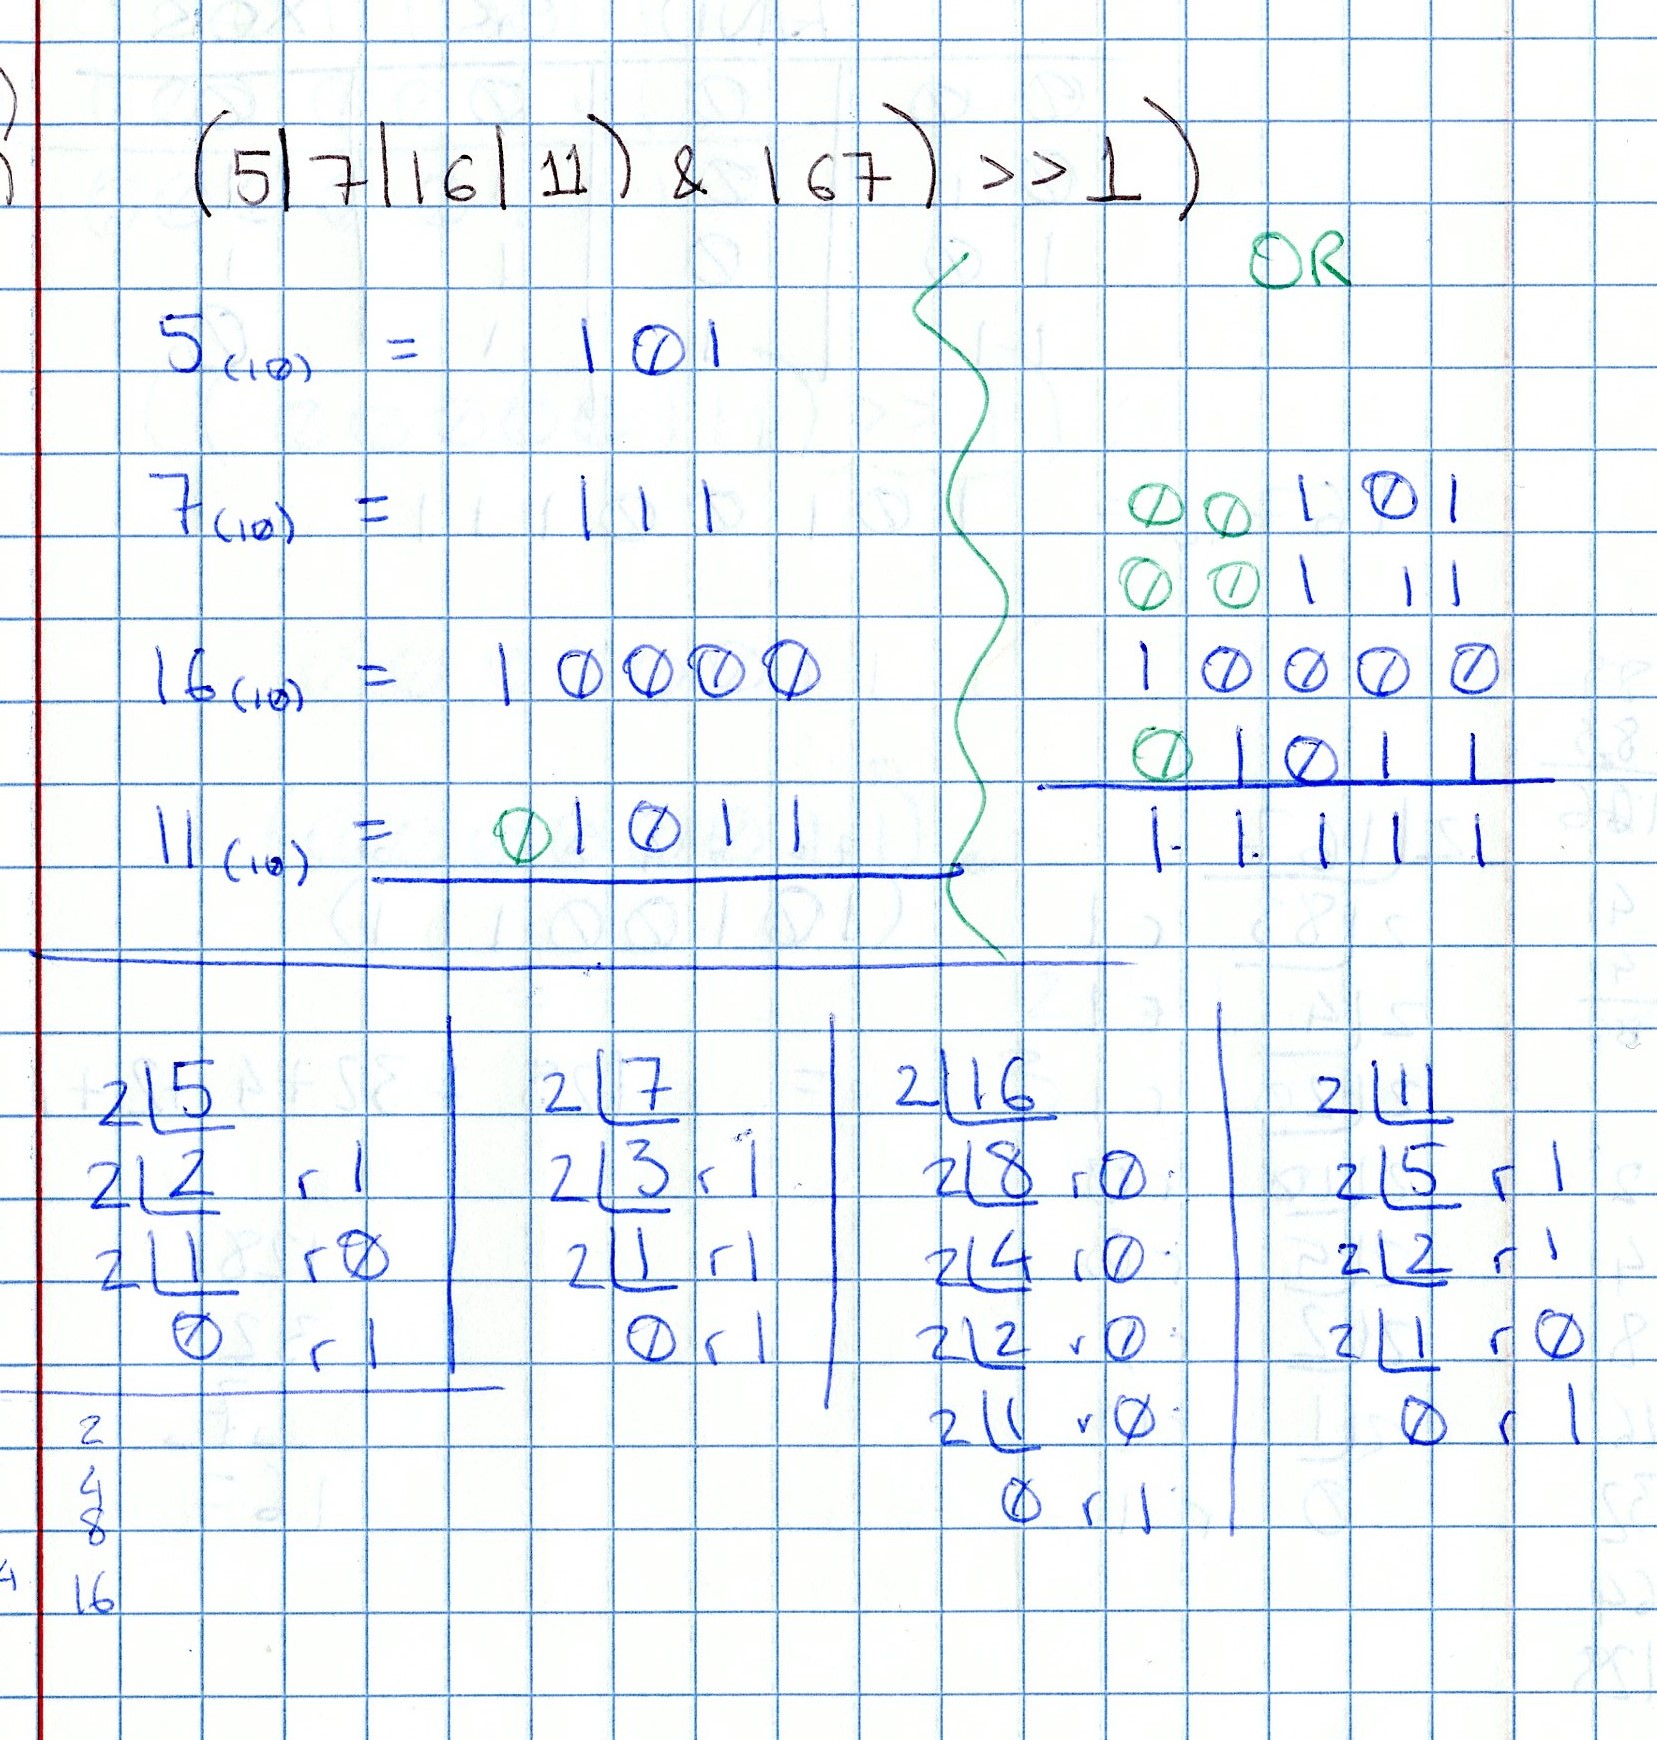 (5|7|16|11) & 167) >> 1)
OR
5(10) = 101
7(10) = 111
16(10) = 10000
11(10) = 01011
00101
00111
10000
01011
11111
2 5
2 2 r 1
2 1 r 0
0 r 1
2 7
2 3 r 1
2 1 r 1
0 r 1
2 16
2 8 r 0
2 4 r 0
2 2 r 0
2 1 r 0
0 r 1
2 11
2 5 r 1
2 2 r 1
2 1 r 0
0 r 1
2
4
8
16